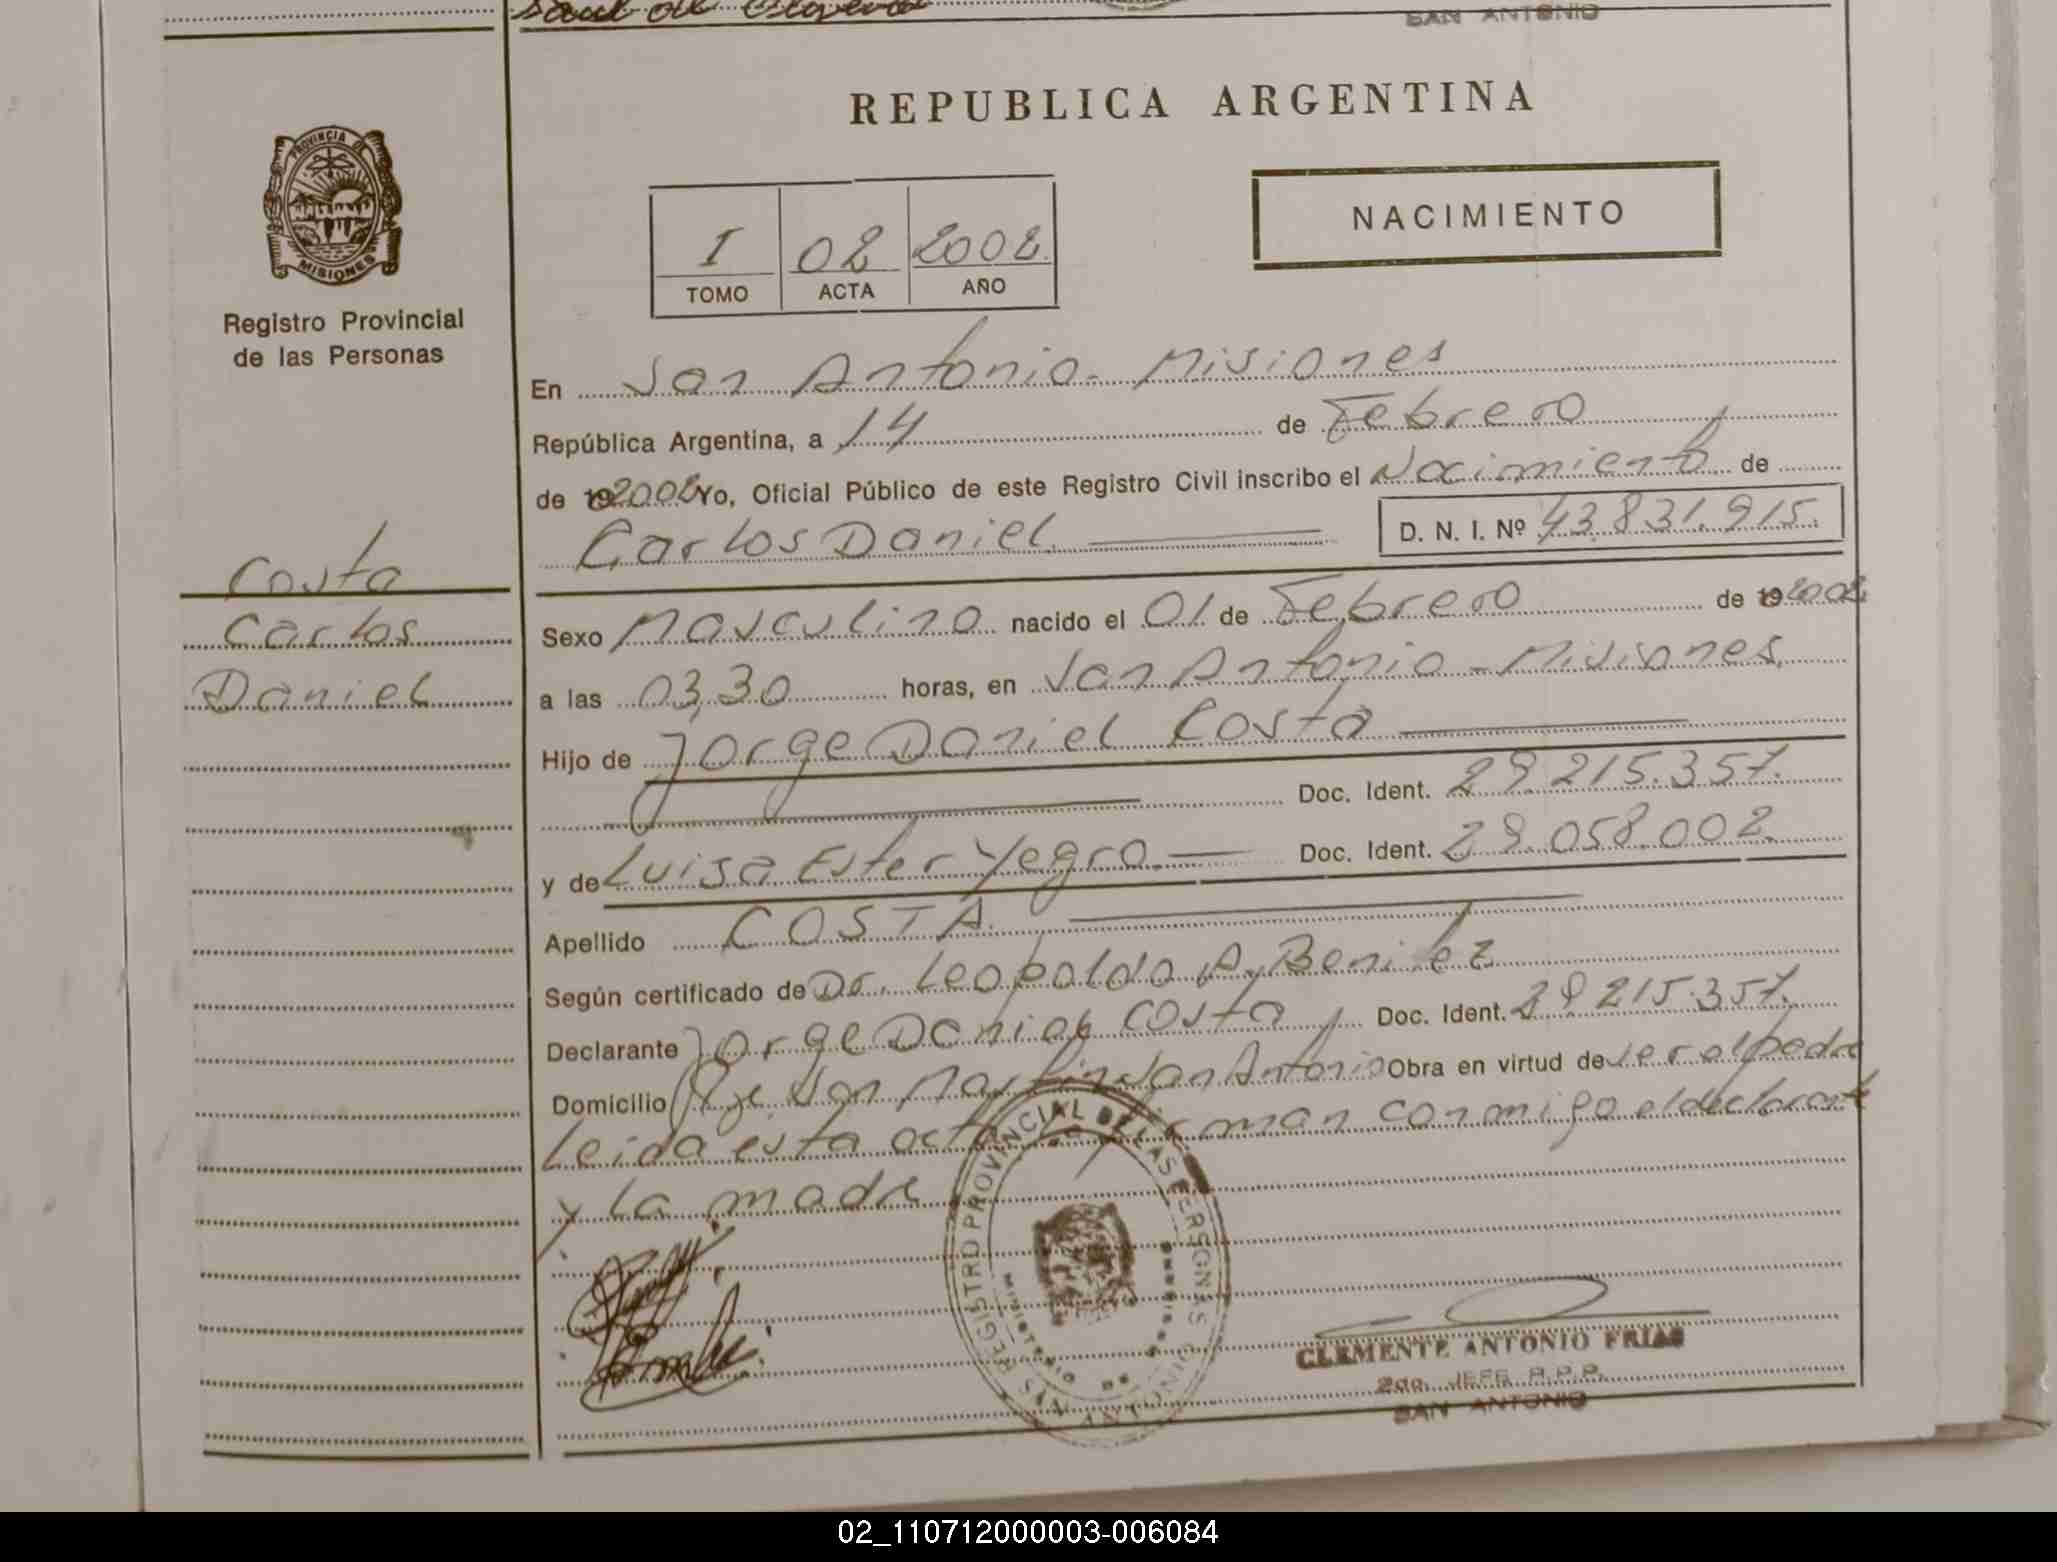 SAN ANTONIO
REPUBLICA ARGENTINA
PROVINCIA DE
MISIONES
NACIMIENTO
I 02 2002
TOMO ACTA AÑO
Registro Provincial
de las Personas
En San Antonio - Misiones
República Argentina, a 14 de Febrero
de 192002 Yo, Oficial Público de este Registro Civil inscribo el Nacimiento de
Carlos Daniel D. N. I. Nº 43.831.915.
Costa
Carlos
Daniel
Sexo Masculino nacido el 01 de Febrero de 192002
a las 03,30 horas, en San Antonio - Misiones
Hijo de Jorge Daniel Costa
Doc. Ident. 29.215.357.
y de Luisa Ester Yegro Doc. Ident. 29.058.002.
Apellido COSTA.
Según certificado de Dr. Leopoldo A. Benitez
Declarante Jorge Daniel Costa Doc. Ident. 29.215.357.
Domicilio San Martin San Antonio Obra en virtud de ser el padre
Leida esta acta la firman conmigo el declarante
y la madre
REGISTRO PROVINCIAL DE LAS PERSONAS
MINISTERIO DE
SAN ANTONIO
CLEMENTE ANTONIO FRIAS
2do. JEFE R.P.P.
SAN ANTONIO
02_110712000003-006084